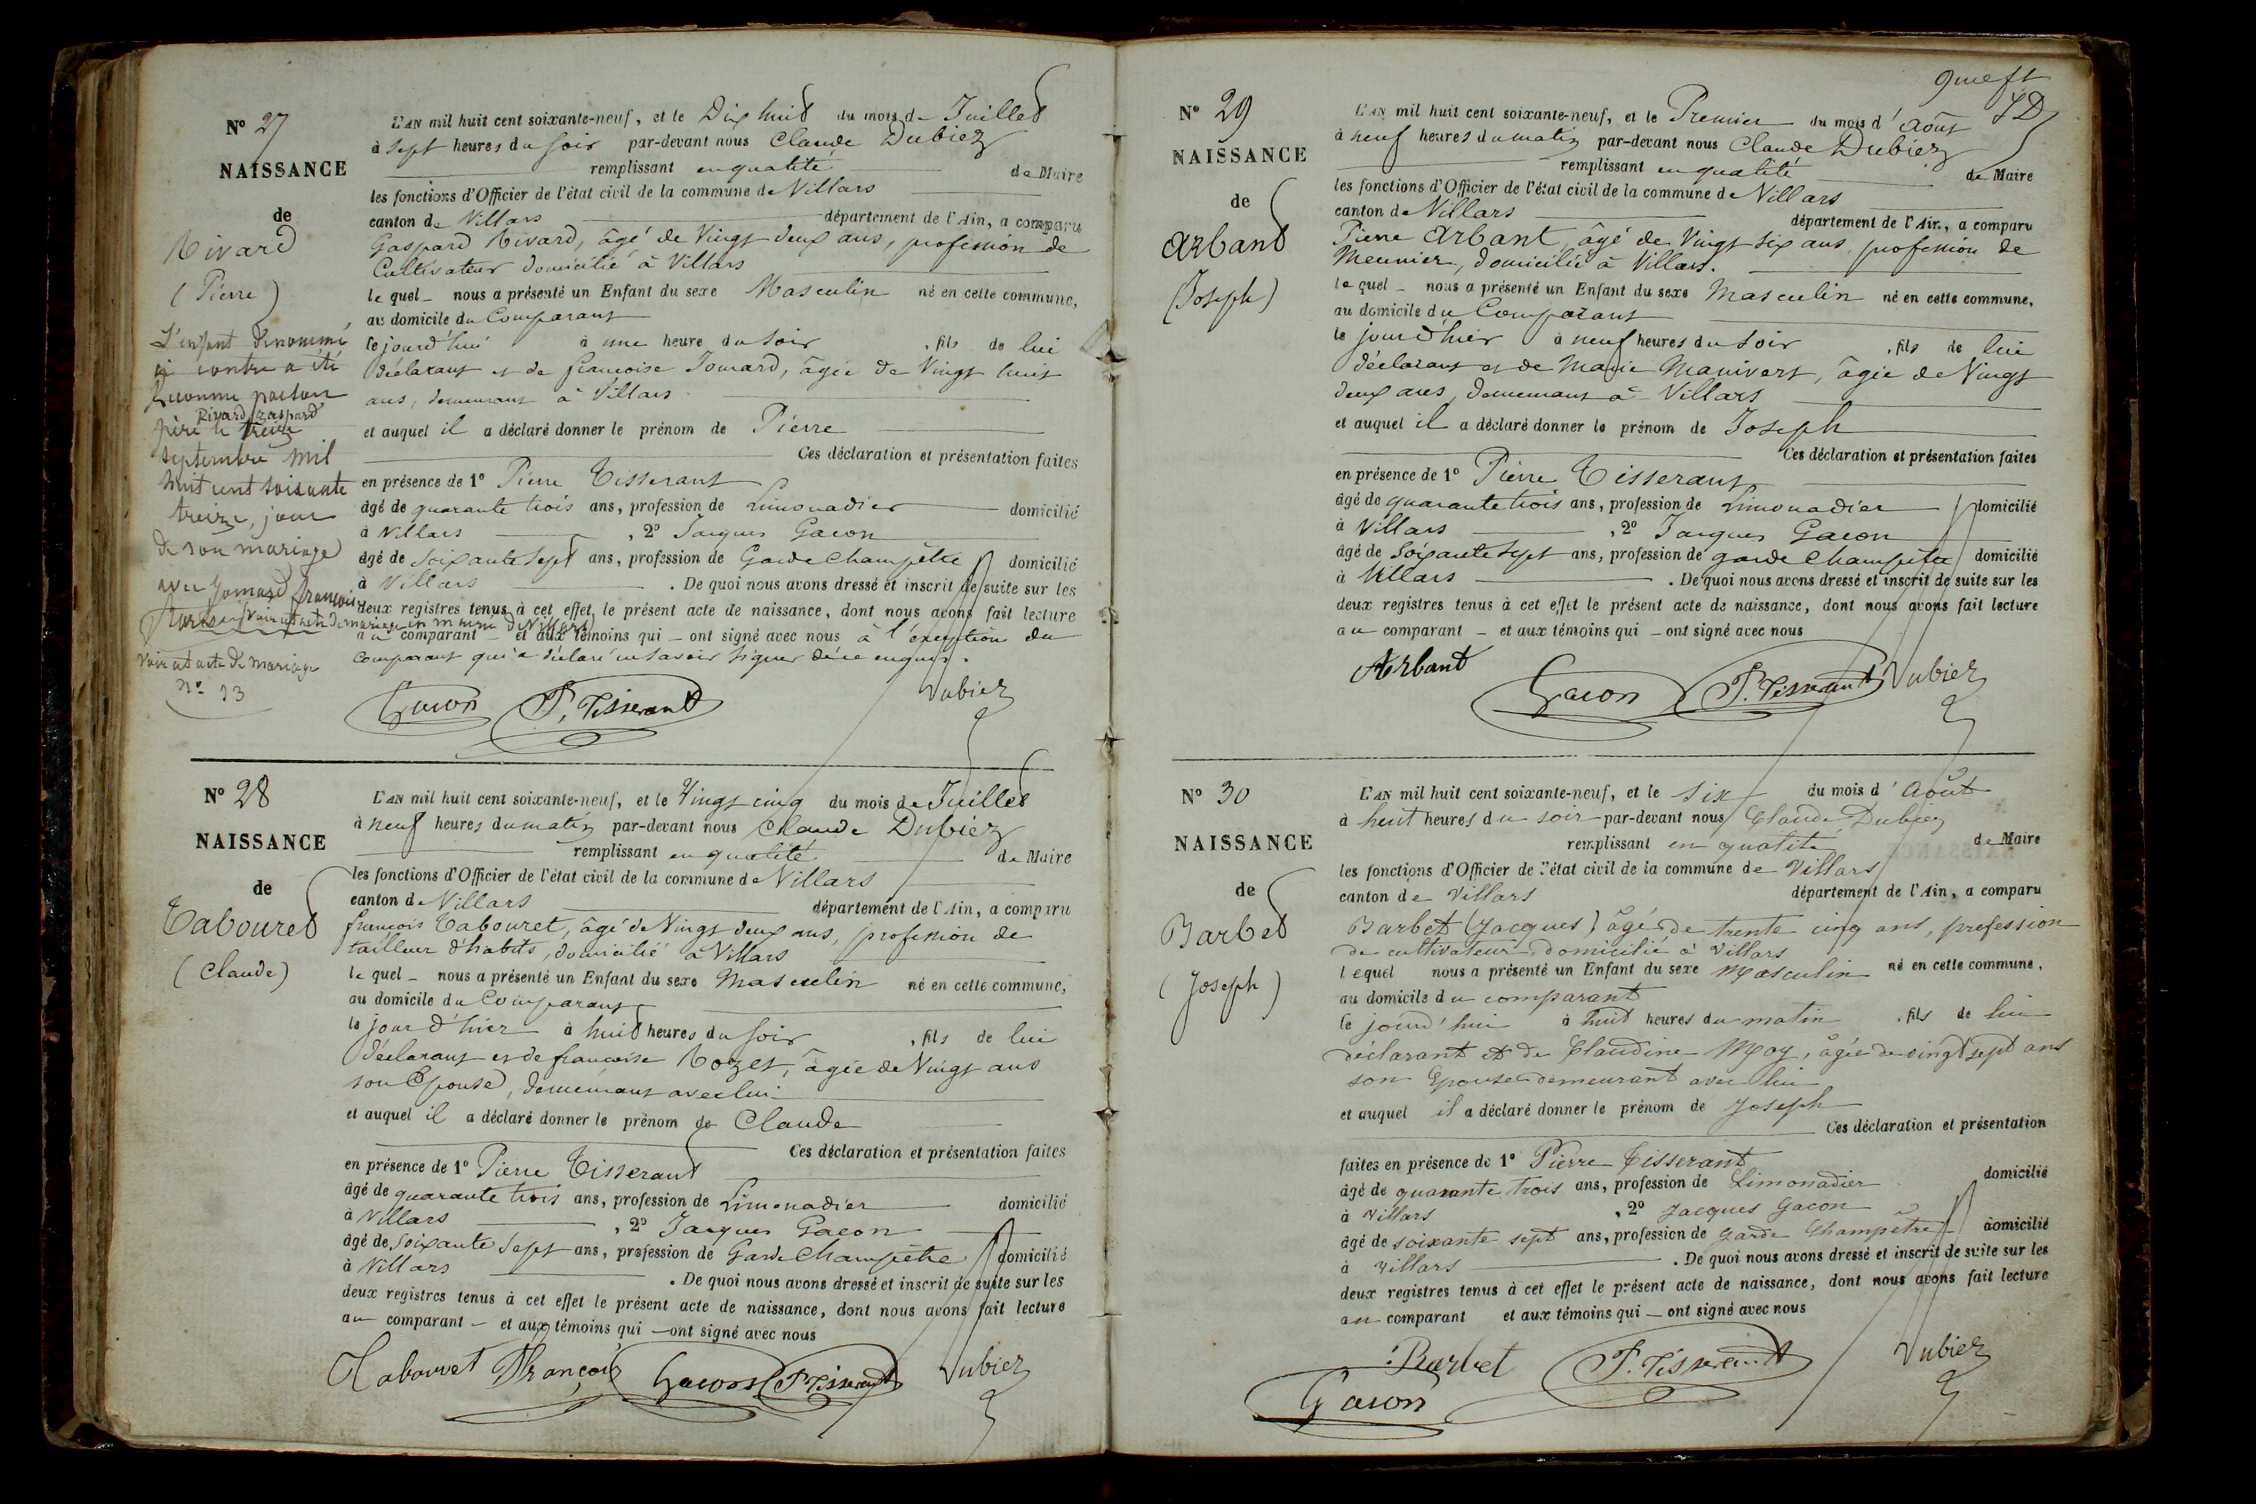 N° 27
NAISSANCE
de
Rivard
(Pierre)
L'enfant dénommé
ci contre a été
reconnu par son
Rivard Gaspard
père le treize
septembre mil
huit cent soixante
treize, jour
de son mariage
avec Jomard françoise
(voir cet acte de mariage en mairie de Villars)
Voir cet acte de mariage
N° 13
L'AN mil huit cent soixante-neuf, et le Dix huit du mois de Juillet
à sept heures du soir par-devant nous Claude Dubiez
remplissant en qualité de Maire
les fonctions d'Officier de l'état civil de la commune de Villars
canton de Villars département de l'Ain, a comparu
Gaspard Rivard, âgé de Vingt deux ans, profession de
Cultivateur domicilié à Villars
le quel nous a présenté un Enfant du sexe Masculin né en cette commune,
au domicile du Comparant
le jourd'hui à une heure du soir, fils de lui
déclarant et de francoise Jomard, âgée de Vingt huit
ans, demeurant à Villars
et auquel il a déclaré donner le prénom de Pierre
Ces déclaration et présentation faites
en présence de 1° Pierre Tisserant
âgé de quarante trois ans, profession de Limonadier domicilié
à Villars, 2° Jacques Gacon
âgé de soixante sept ans, profession de Garde Champêtre domicilié
à Villars. De quoi nous avons dressé et inscrit de suite sur les
deux registres tenus à cet effet, le présent acte de naissance, dont nous avons fait lecture
au comparant et aux témoins qui ont signé avec nous à l'exception du
comparant qui a déclaré ne savoir signer de ce enquis.
Gacon P. Tisserant Dubiez
N° 28
NAISSANCE
de
Tabouret
(Claude)
L'AN mil huit cent soixante-neuf, et le Vingt cinq du mois de Juillet
à neuf heures du matin par-devant nous Claude Dubiez
remplissant en qualité de Maire
les fonctions d'Officier de l'état civil de la commune de Villars
canton de Villars département de l'Ain, a comparu
françois Tabouret, âgé de Vingt deux ans, profession de
tailleur d'habits, domicilié à Villars
le quel nous a présenté un Enfant du sexe Masculin né en cette commune,
au domicile du Comparant
le jour d'hier à huit heures du soir, fils de lui
déclarant et de francoise Rozet, âgée de Vingt ans
son Epouse, demeurant avec lui
et auquel il a déclaré donner le prénom de Claude
Ces déclaration et présentation faites
en présence de 1° Pierre Tisserant
âgé de quarante trois ans, profession de Limonadier domicilié
à Villars, 2° Jacques Gacon
âgé de soixante sept ans, profession de Garde Champêtre domicilié
à Villars. De quoi nous avons dressé et inscrit de suite sur les
deux registres tenus à cet effet le présent acte de naissance, dont nous avons fait lecture
au comparant et aux témoins qui ont signé avec nous
Tabouret François Gacon P. Tisserant Dubiez
N° 29
NAISSANCE
de
Arbant
(Joseph)
L'AN mil huit cent soixante-neuf, et le Premier du mois d'Août
à neuf heures du matin par-devant nous Claude Dubiez
remplissant en qualité de Maire
les fonctions d'Officier de l'état civil de la commune de Villars
canton de Villars département de l'Ain, a comparu
Pierre Arbant, âgé de Vingt six ans profession de
Meunier, domicilié à Villars.
le quel nous a présenté un Enfant du sexe Masculin né en cette commune,
au domicile du Comparant
le jour d'hier à neuf heures du soir, fils de lui
déclarant et de Marie Manivert, âgée de Vingt
deux ans, demeurant à Villars
et auquel il a déclaré donner le prénom de Joseph
Ces déclaration et présentation faites
en présence de 1° Pierre Tisserant
âgé de quarante trois ans, profession de Limonadier domicilié
à Villars, 2° Jacques Gacon
âgé de soixante sept ans, profession de garde champêtre domicilié
à Villars. De quoi nous avons dressé et inscrit de suite sur les
deux registres tenus à cet effet le présent acte de naissance, dont nous avons fait lecture
au comparant et aux témoins qui ont signé avec nous
Arbant Gacon P. Tisserant Dubiez
N° 30
NAISSANCE
de
Barbet
(Joseph)
L'AN mil huit cent soixante-neuf, et le six du mois d'Août
à huit heures du soir par-devant nous Claude Dubiez
remplissant en qualité de Maire
les fonctions d'Officier de l'état civil de la commune de Villars
canton de Villars département de l'Ain, a comparu
Barbet (Jacques) âgé de trente cinq ans, profession
de cultivateur, domicilié à Villars
lequel nous a présenté un Enfant du sexe Masculin né en cette commune,
au domicile du comparant
le jourd'hui à huit heures du matin, fils de lui
déclarant et de Claudine Moy, âgée de vingt sept ans
son Epouse demeurant avec lui
et auquel il a déclaré donner le prénom de Joseph
Ces déclaration et présentation
faites en présence de 1° Pierre Tisserant
âgé de quarante trois ans, profession de Limonadier domicilié
à Villars, 2° Jacques Gacon
âgé de soixante sept ans, profession de Garde Champêtre domicilié
à Villars. De quoi nous avons dressé et inscrit de suite sur les
deux registres tenus à cet effet le présent acte de naissance, dont nous avons fait lecture
au comparant et aux témoins qui ont signé avec nous
Barbet P. Tisserant Dubiez
Gacon